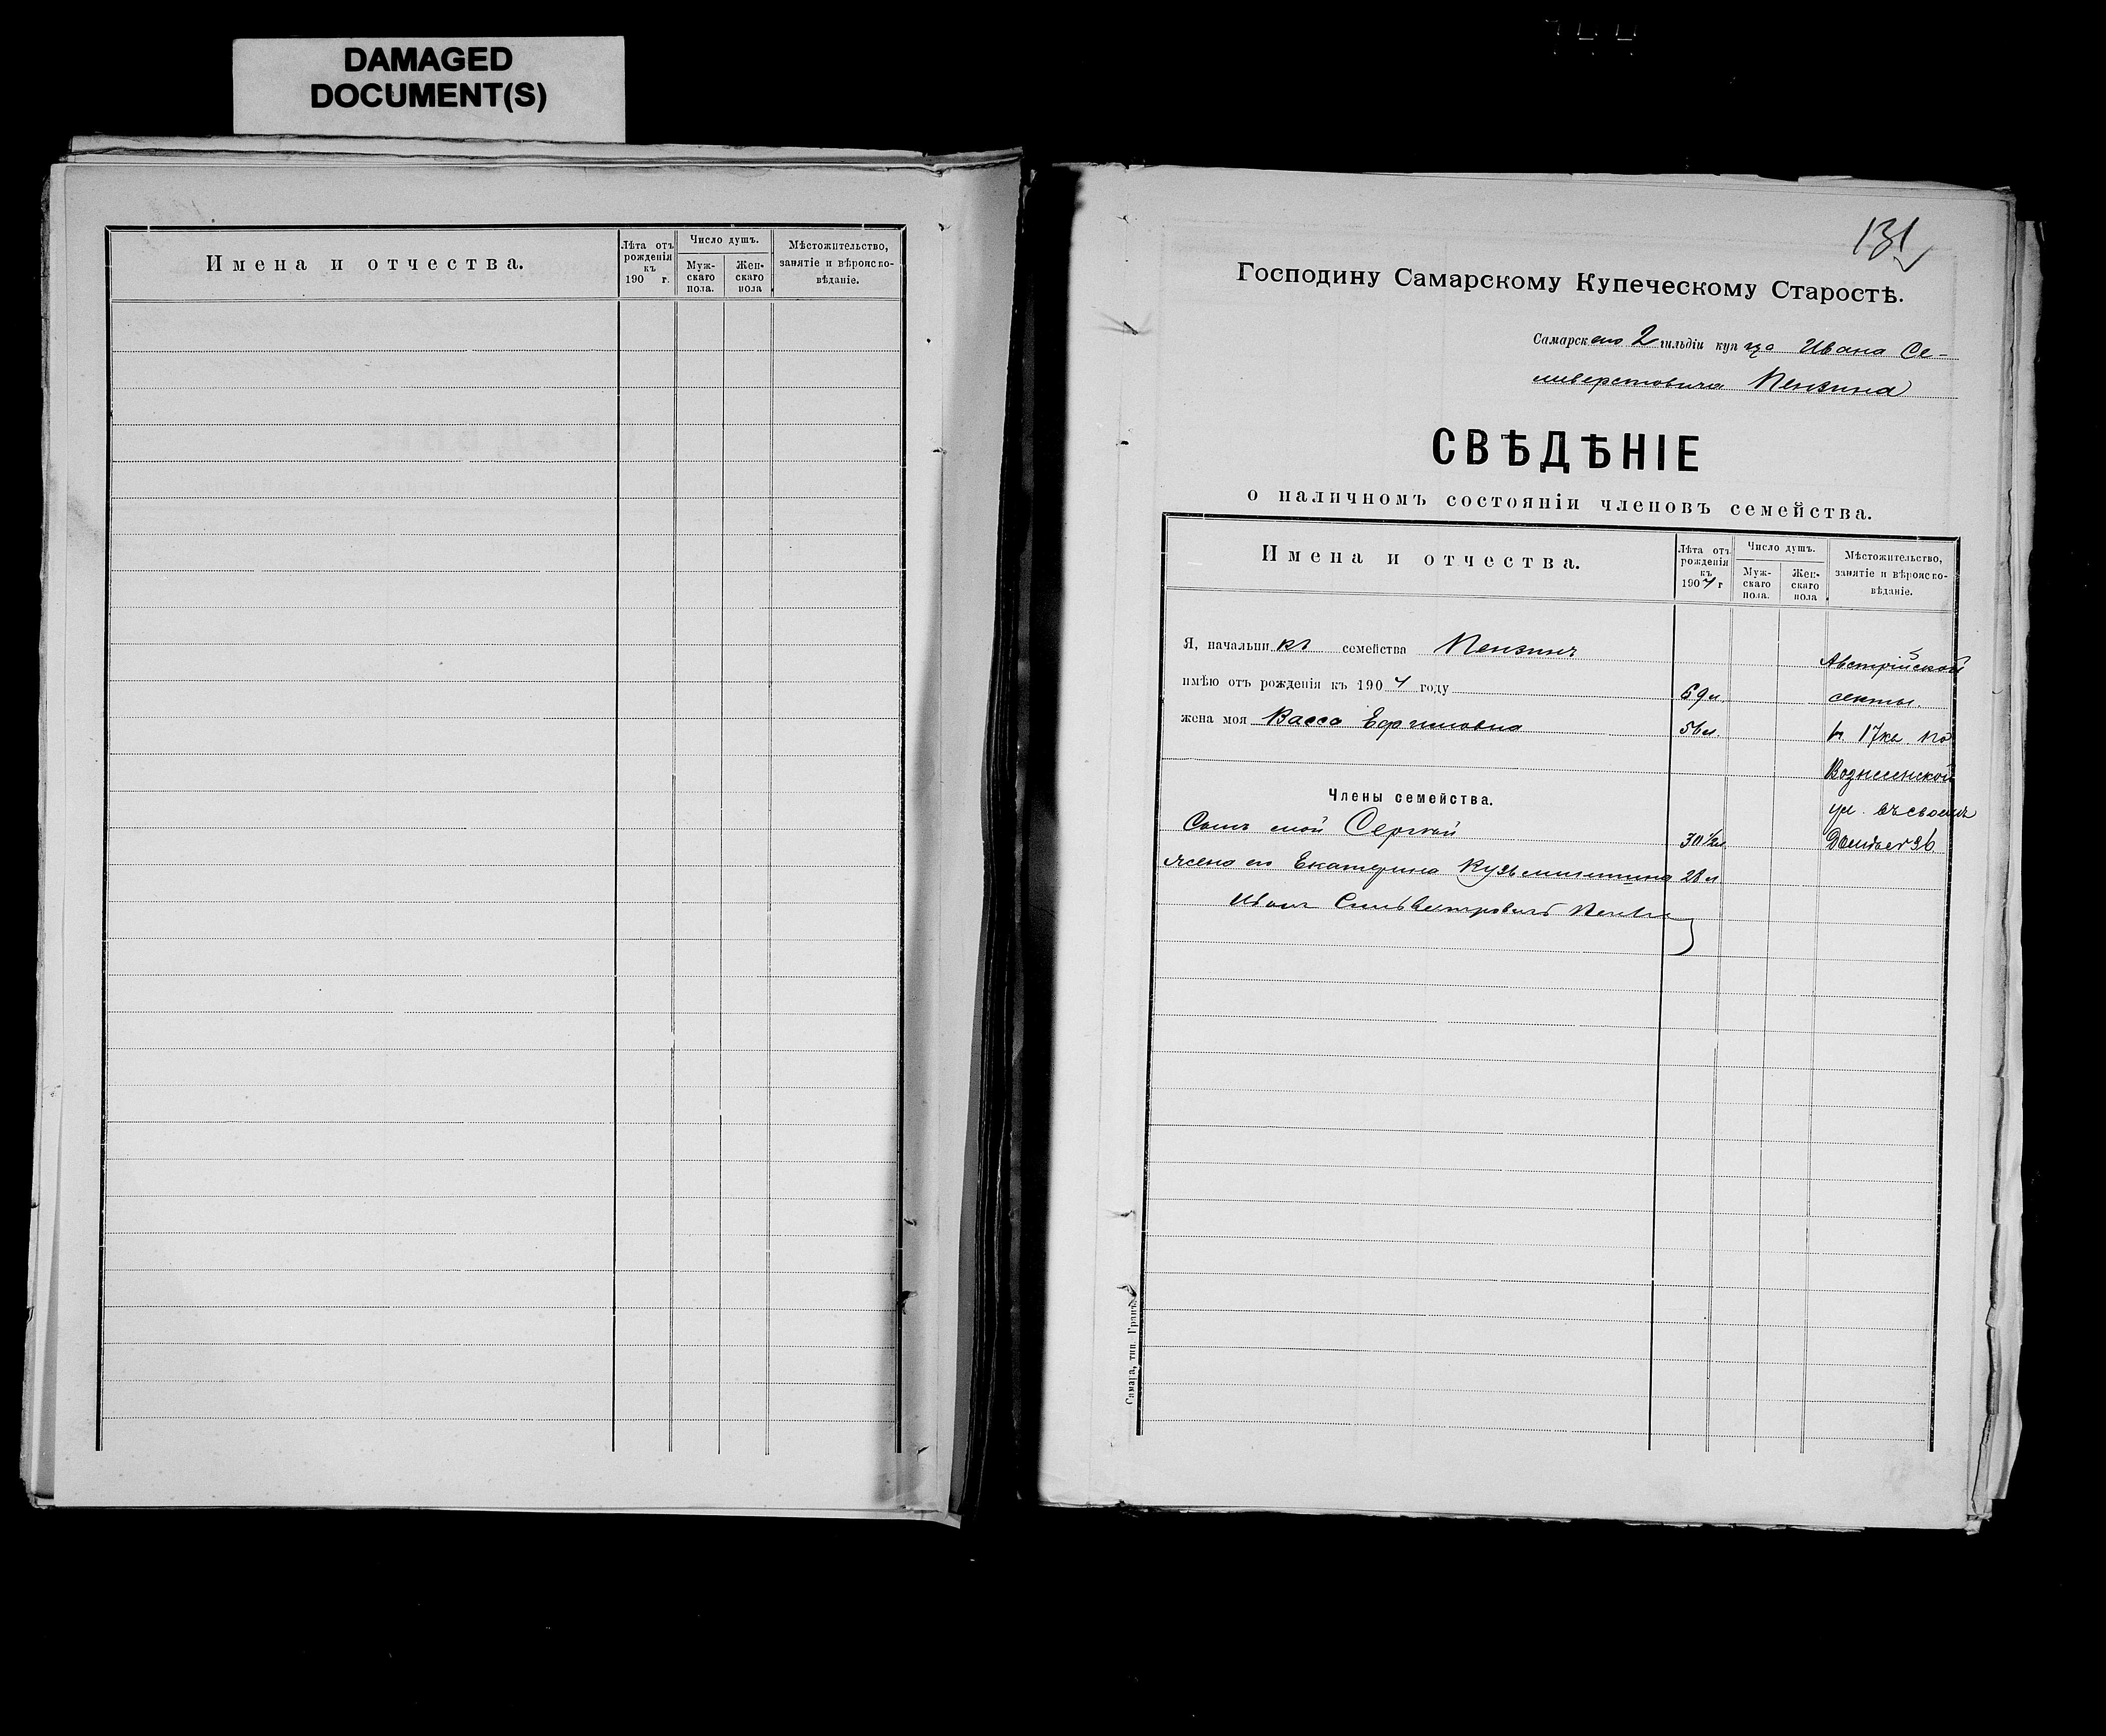 DAMAGED
DOCUMENT(S)
Имена и отчества.
Лѣта отъ рожденія къ 190 г.
Число душъ.
Мужскаго пола.
Женскаго пола
Мѣстожительство, занятіе и вѣроисповѣданіе.
131
Господину Самарскому Купеческому Старостѣ.
Самарскаго 2 гильдіи купца Ивана Се-
ливерстовича Пензина
СВѢДѢНІЕ
о наличномъ состояніи членовъ семейства.
Имена и отчества.
Лѣта отъ рожденія къ 1904 г
Число душъ.
Мужскаго пола.
Женскаго пола
Мѣстожительство, занятіе и вѣроисповѣданіе.
Я, начальникъ семейства Пензинъ
Австрійской
имѣю отъ рожденія къ 1904 году 69 л.
секты.
жена моя Васса Ефимовна 56 л.
в. 17 кв. по
Вознесенской
Члены семейства.
ул. въ своемъ
Сынъ мой Сергѣй 30 ½ л
Домѣ № 96
Жена его Екатерина Кузьминишна 28 л
Иванъ Сильвестровичъ Пензин
Самара, тип. Гранъ.